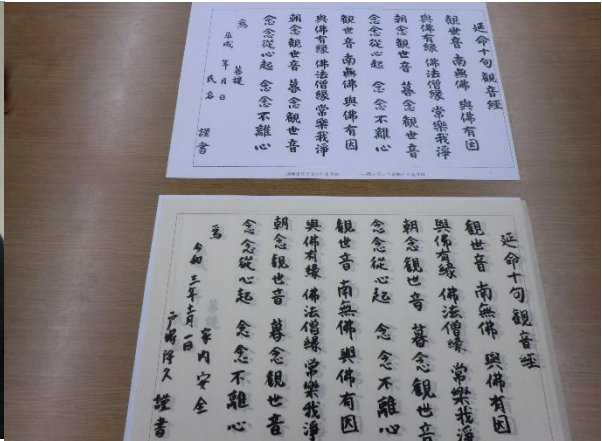 延命十句觀音經
観世音 南無佛 與佛有因
與佛有縁 佛法僧縁 常樂我淨
朝念観世音 暮念観世音
念念從心起 念念不離心
観世音 南無佛 與佛有因
與佛有縁 佛法僧縁 常樂我淨
朝念観世音 暮念観世音
念念從心起 念念不離心
為 菩提
平成 年 月 日
氏名 謹書
延命十句觀音經
観世音 南無佛 與佛有因
與佛有縁 佛法僧縁 常樂我淨
朝念観世音 暮念観世音
念念從心起 念念不離心
観世音 南無佛 與佛有因
與佛有縁 佛法僧縁 常樂我淨
朝念観世音 暮念観世音
念念從心起 念念不離心
為 菩提 家内安全
令和三年十一月一日
謹書